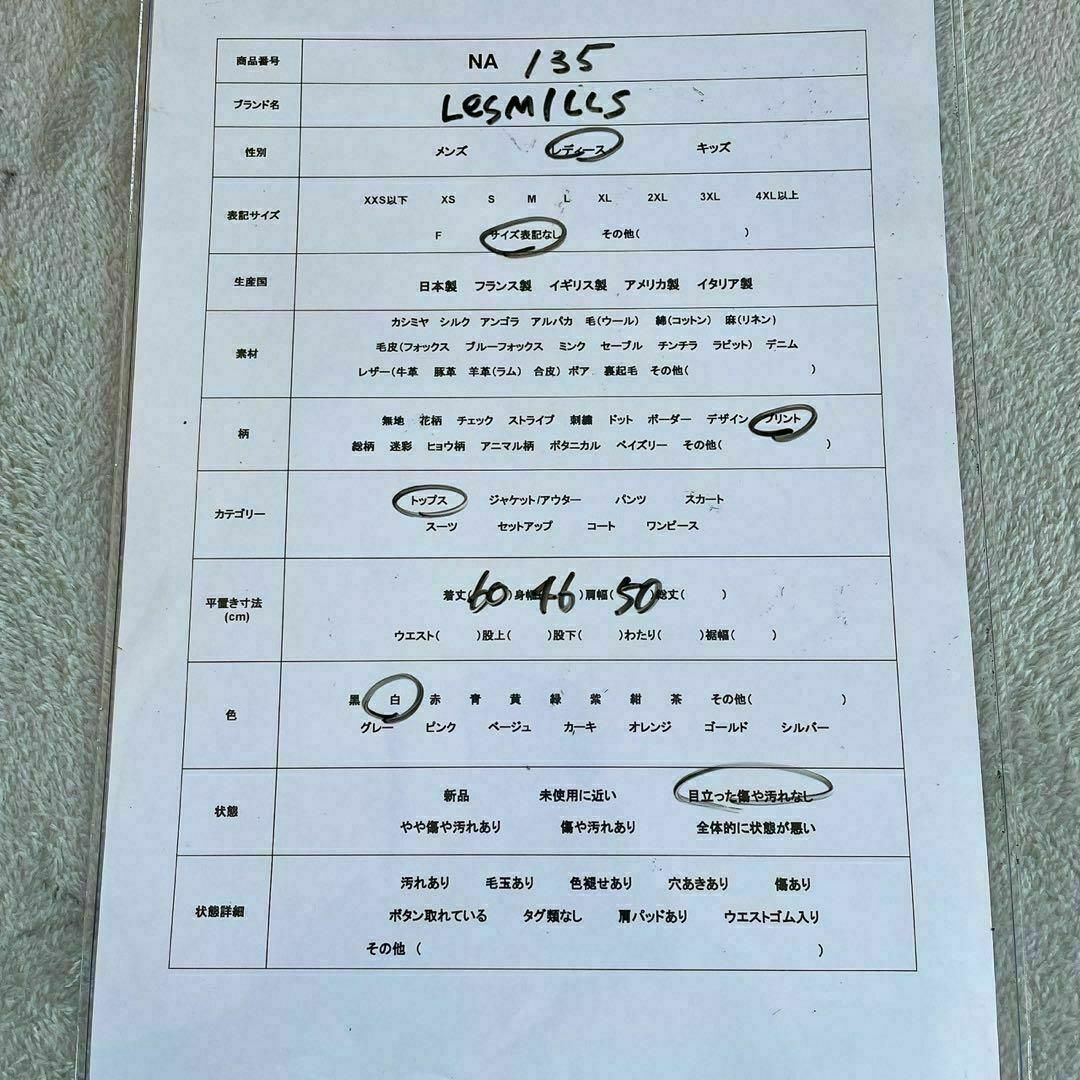 商品番号 NA 135
ブランド名 LesMILLS
性別 メンズ レディース キッズ
表記サイズ
XXS以下 XS S M L XL 2XL 3XL 4XL以上
F サイズ表記なし その他( )
生産国 日本製 フランス製 イギリス製 アメリカ製 イタリア製
素材
カシミヤ シルク アンゴラ アルパカ 毛(ウール) 綿(コットン) 麻(リネン)
毛皮(フォックス ブルーフォックス ミンク セーブル チンチラ ラビット) デニム
レザー(牛革 豚革 羊革(ラム) 合皮) ボア 裏起毛 その他( )
柄
無地 花柄 チェック ストライプ 刺繍 ドット ボーダー デザイン プリント
総柄 迷彩 ヒョウ柄 アニマル柄 ボタニカル ペイズリー その他( )
カテゴリー
トップス ジャケット/アウター パンツ スカート
スーツ セットアップ コート ワンピース
平置き寸法
(cm)
着丈(60)身幅(46)肩幅(50)総丈( ) ( )
ウエスト( )股上( )股下( )わたり( )裾幅( )
色
黒 白 赤 青 黄 緑 紫 紺 茶 その他( )
グレー ピンク ベージュ カーキ オレンジ ゴールド シルバー
状態
新品 未使用に近い 目立った傷や汚れなし
やや傷や汚れあり 傷や汚れあり 全体的に状態が悪い
状態詳細
汚れあり 毛玉あり 色褪せあり 穴あきあり 傷あり
ボタン取れている タグ類なし 肩パッドあり ウエストゴム入り
その他 ( )